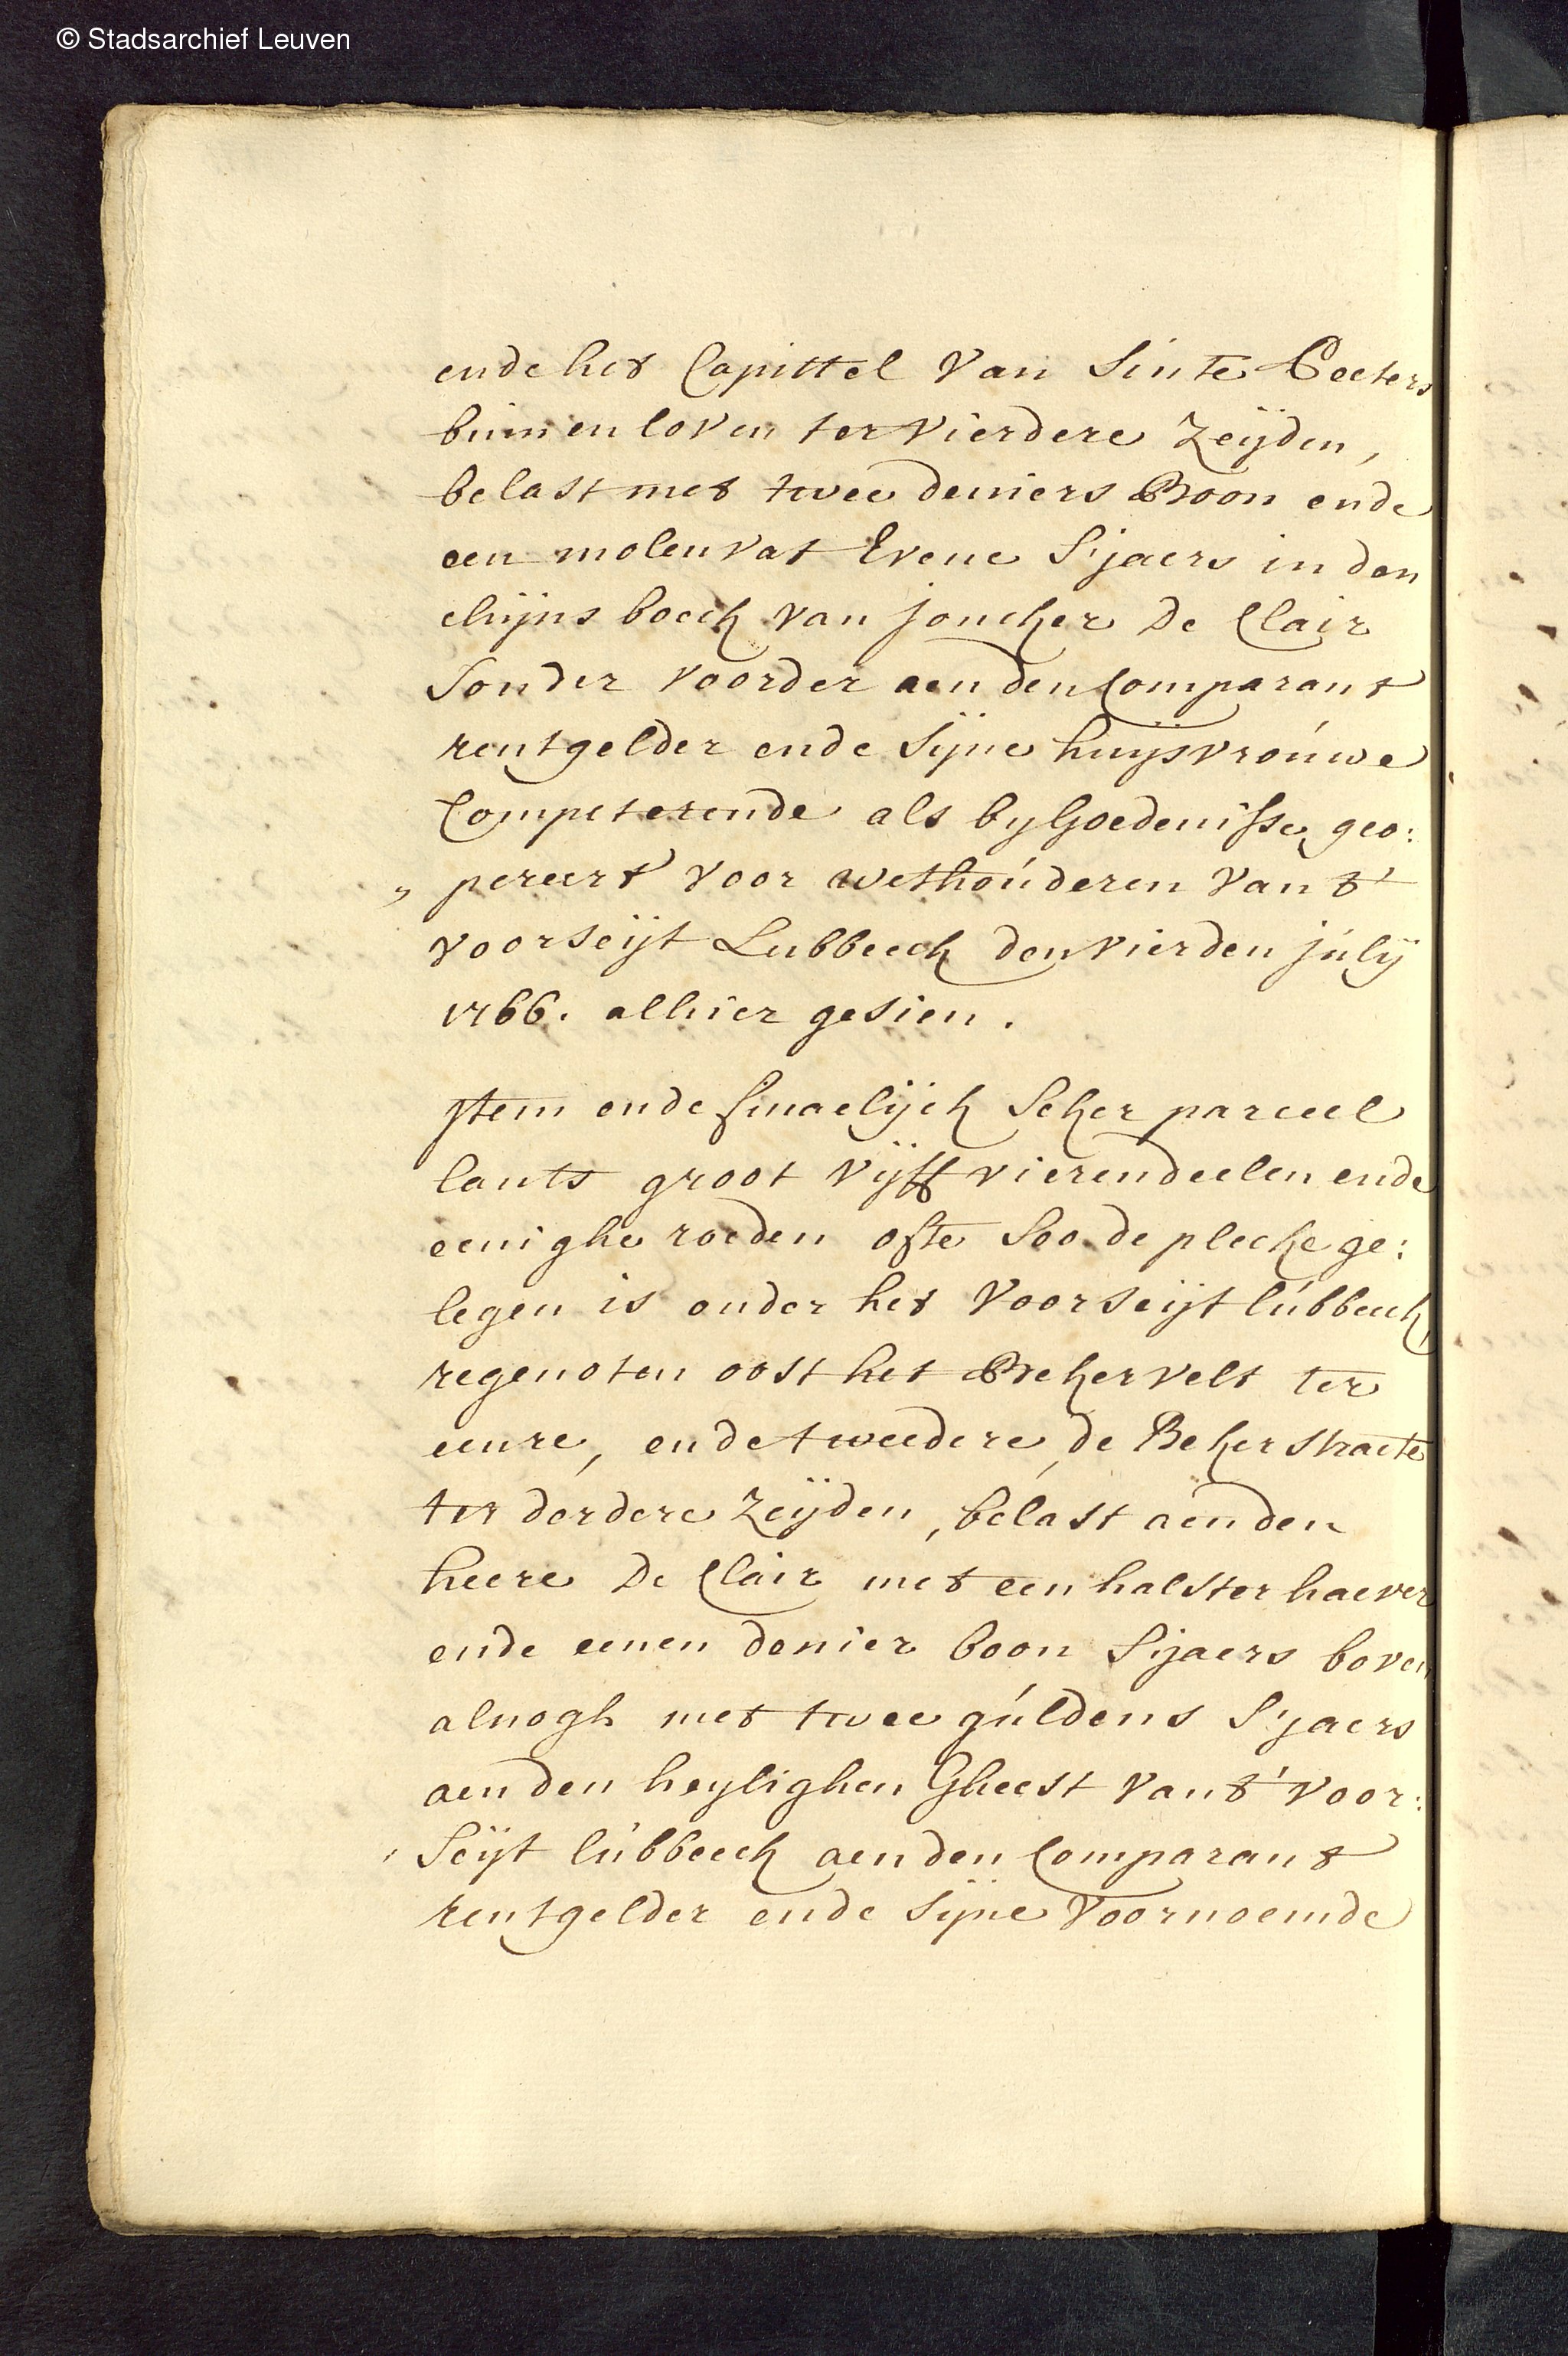 © Stadsarchief Leuven
ende het Capittel Van Sinte Peeters
binnen loven ter vierdere Zeijden,
belast met twee deniers Boon ende
een molenvat Evene S'jaers in den
chijns boeck van joncker De Clair
Sonder voorder aen den Comparant
rentgelder ende Sijne huijsvroúwe
Competerende als by Goedenisse geo:
„ pereert voor wethoúderen van t'
voorseijt Lubbeeck den vierden júlij
1766. alhier gesien.
Item ende finaelijck Seker parceel
lants groot vijff vierendeelen ende
eenighe roeden ofte Soo de plecke ge:
legen is onder het Voorseijt lúbbeeck,
regenoten oost het Bekervelt ter
eenre, ende tweedere, de Bekerstraete
ter derdere Zeijden, belast aen den
heere De Clair met een halster haever
ende eenen denier boon S'jaers boven
alnogh met twee gúldens S'jaers
aen den heylighen Gheest van t' voor:
Seijt lúbbeeck aen den Comparant
rentgelder ende Sijne Voornoemde